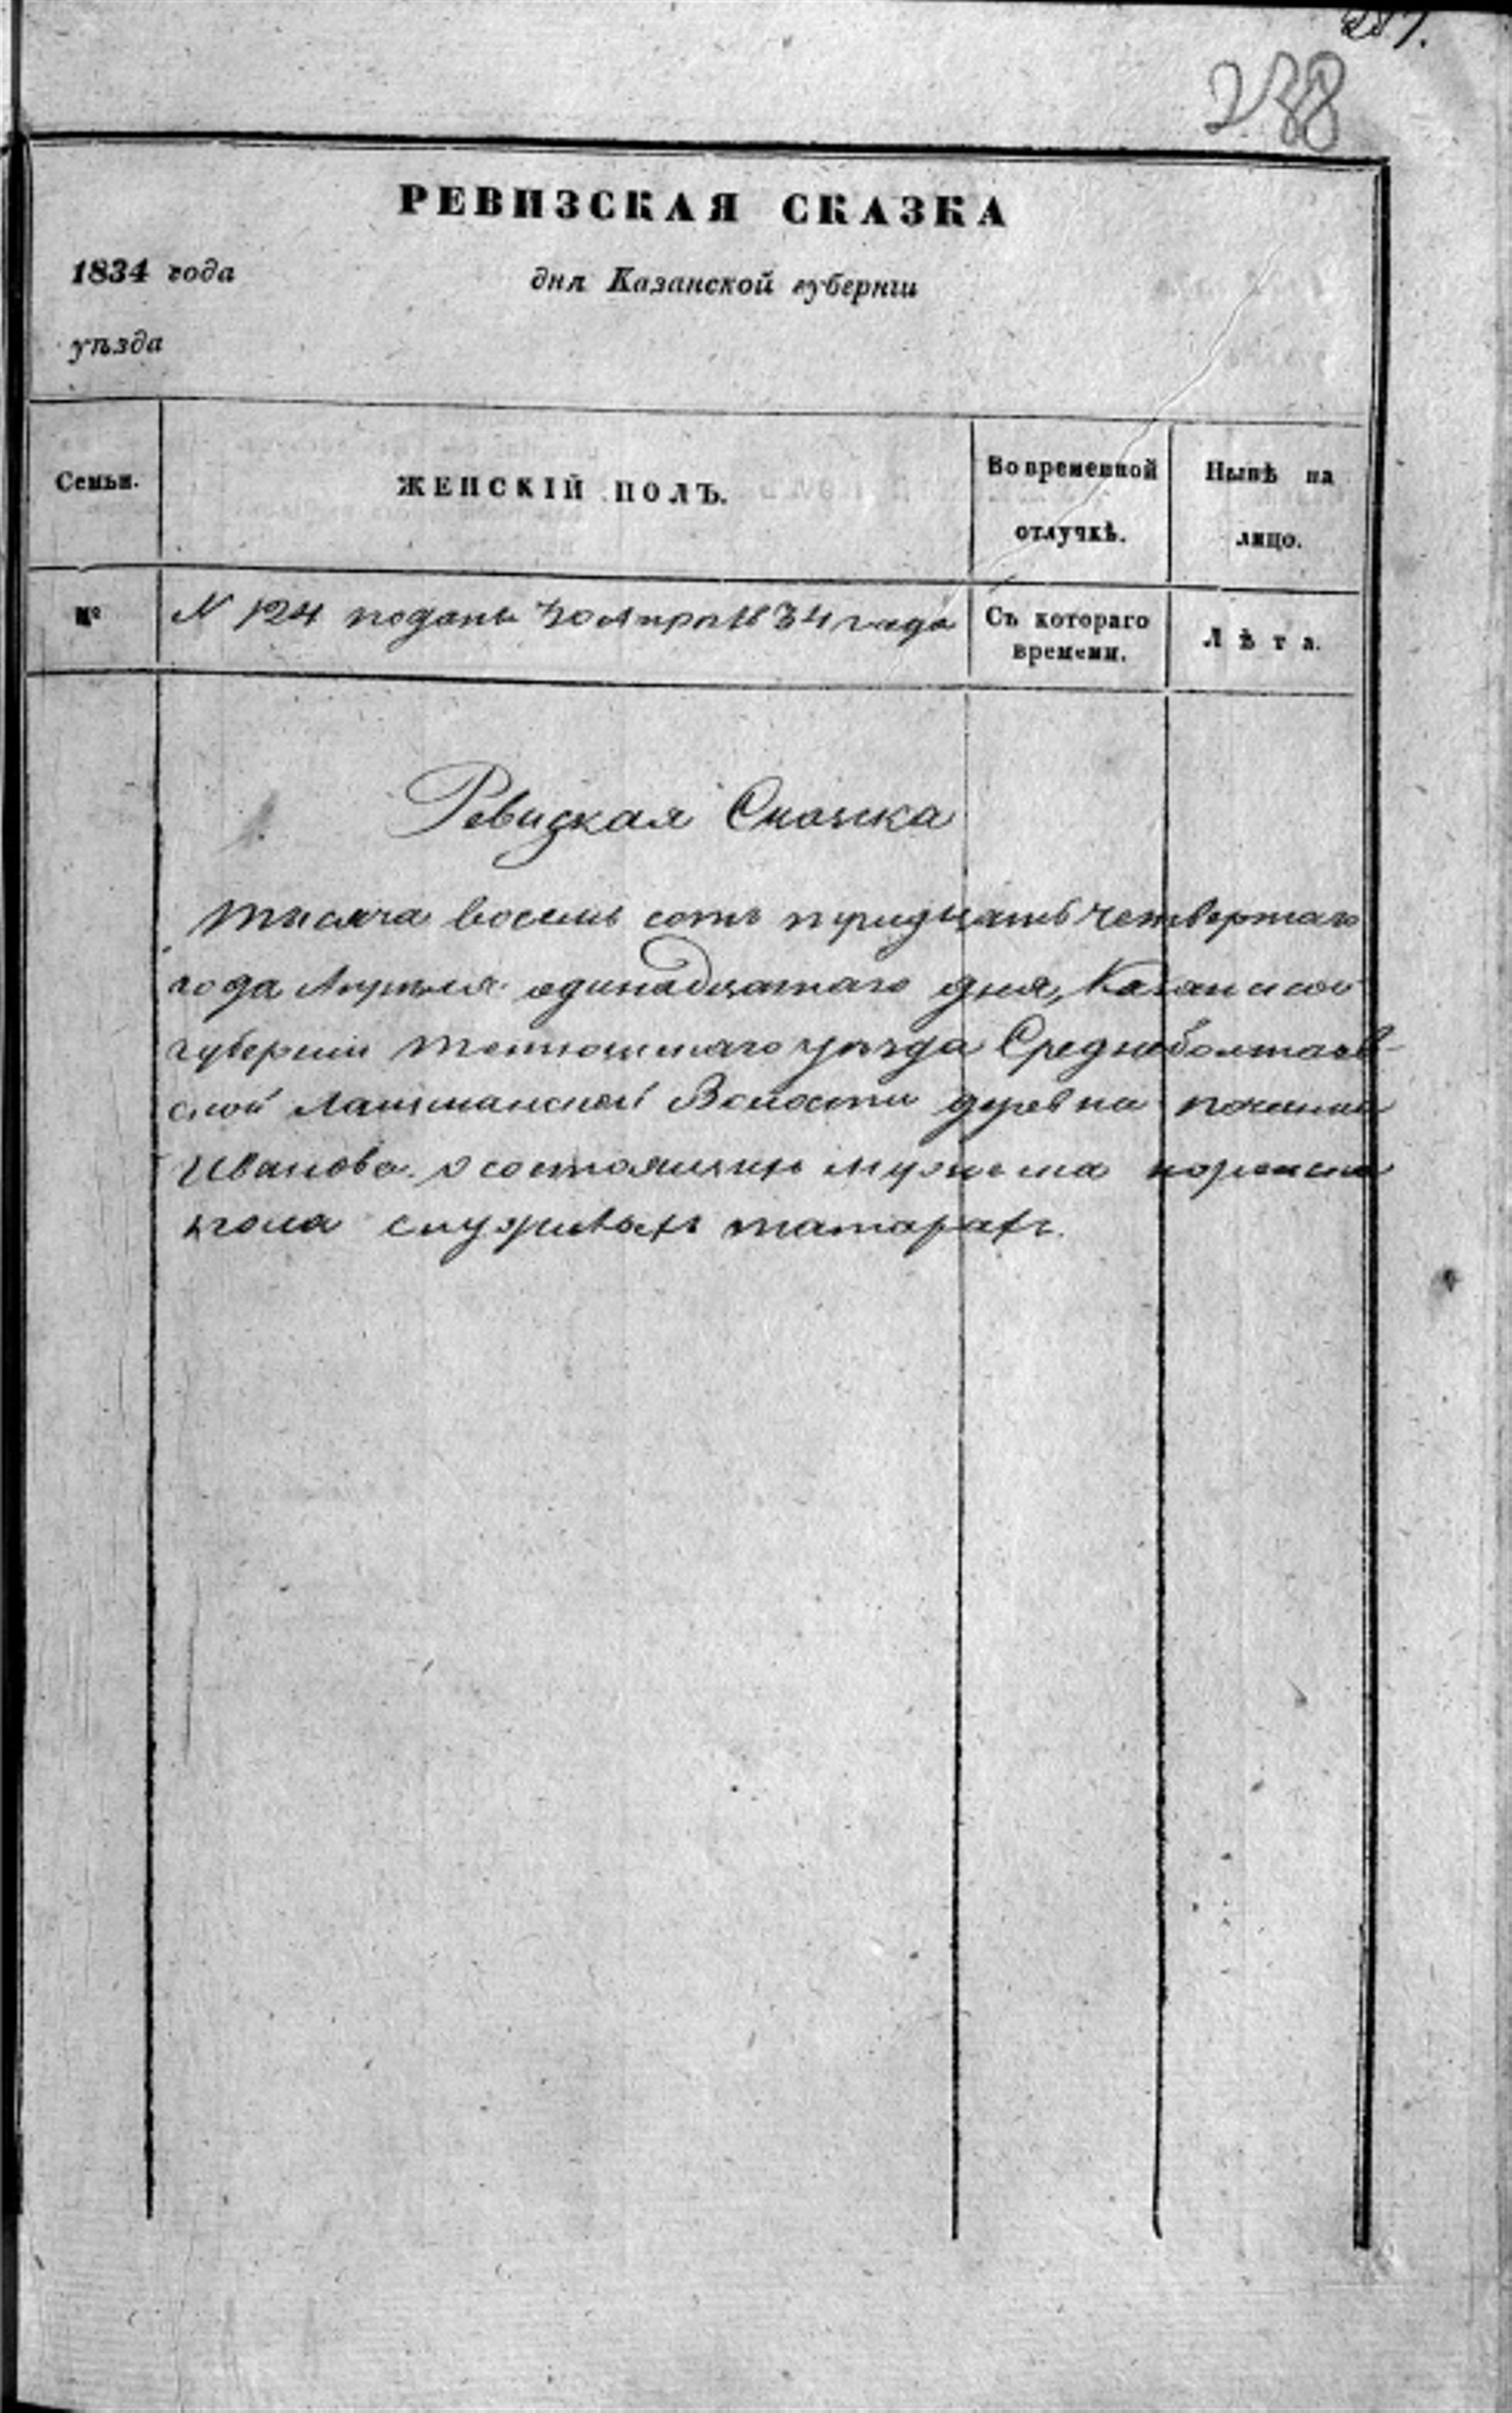 287.
238
РЕВИЗСКАЯ СКАЗКА
1834 года дня Казанской губернїи
уѣзда
Семьи. ЖЕНСКІЙ ПОЛЪ. Во временной отлучкѣ. Нынѣ на лицо.
№ N 124 подана 30 Апрѣ 1834 года Съ котораго времени. Лѣта.
Ревизкая Сказка
тысяча восемь сотъ тридцать четвертаго
года Апреля одинадцатаго дня, Казанской
губернїи тетюшскаго уѣзда Среднебалтаев-
ской Лашманской Волости деревна
Иванова о состоящихъ мужеска женска
пола служивыхъ татарахъ.